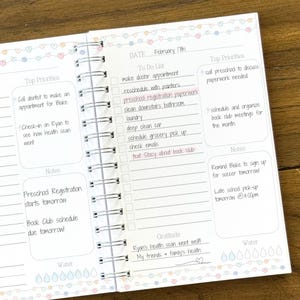 Top Priorities
Call dentist to make an
appointment for Blake.
Check-in on Ryan to
see how health scan
went
Notes
Preschool Registration
starts tomorrow!
Book Club schedule
due tomorrow!
Water
DATE February 17th
To Do List
make doctor appointment
reschedule with painters
preschool registration paperwork
clean downstairs bathroom
laundry
deep clean car
schedule grocery pick up
check emails
text Stacy about book club
Gratitude
Ryan's health scan went well!
My friends + family's health
Top Priorities
call preschool to discuss
paperwork needed
Schedule and organize
book club meetings for
the month.
Notes
Remind Blake to sign up
for soccer tomorrow!
Late school pick up
tomorrow @4:00pm
Water